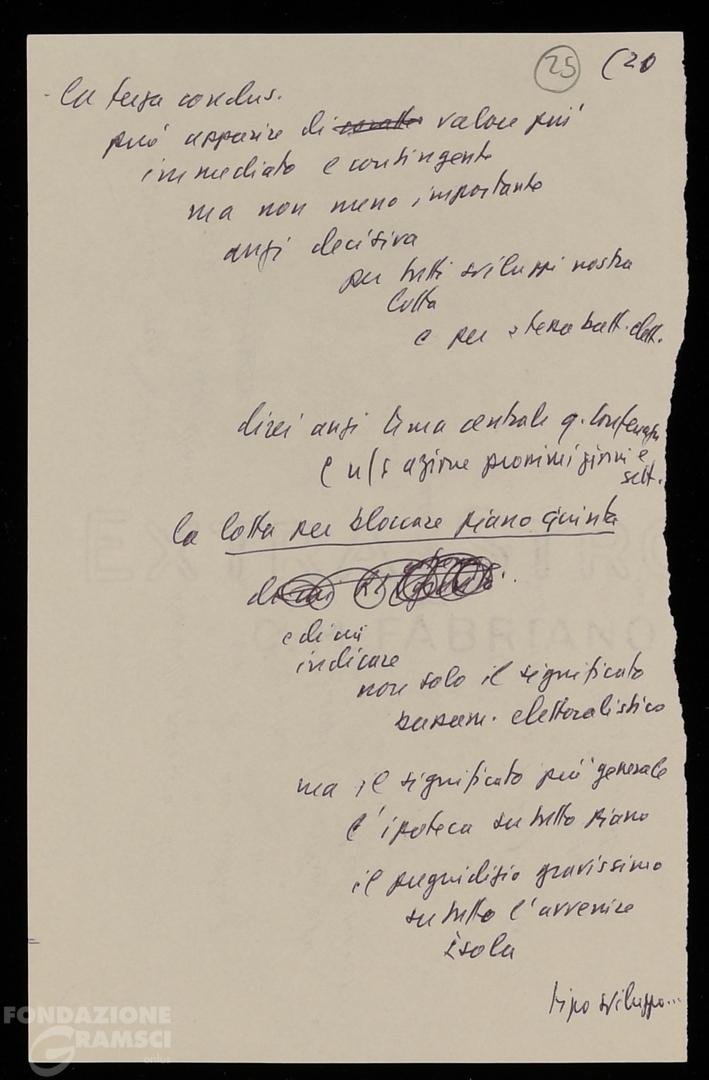 25 (20
- La terza conclus.
può apparire di valore più
immediato e contingente
ma non meno importante
anzi decisiva
per tutti sviluppi nostra
lotta
e per stessa batt. elett.
direi anzi tema centrale q. Conferenza
e n/s azione prossimi giorni e
sett.
la lotta per bloccare piano quinta
e di cui
indicare
non solo il significato
bassam. elettoralistico
ma il significato più generale
l'ipoteca su tutto piano
il pregiudizio gravissimo
su tutto l'avvenire
Isola
tipo sviluppo...
EXTRA
FABRIANO
FONDAZIONE
GRAMSCI
onlus